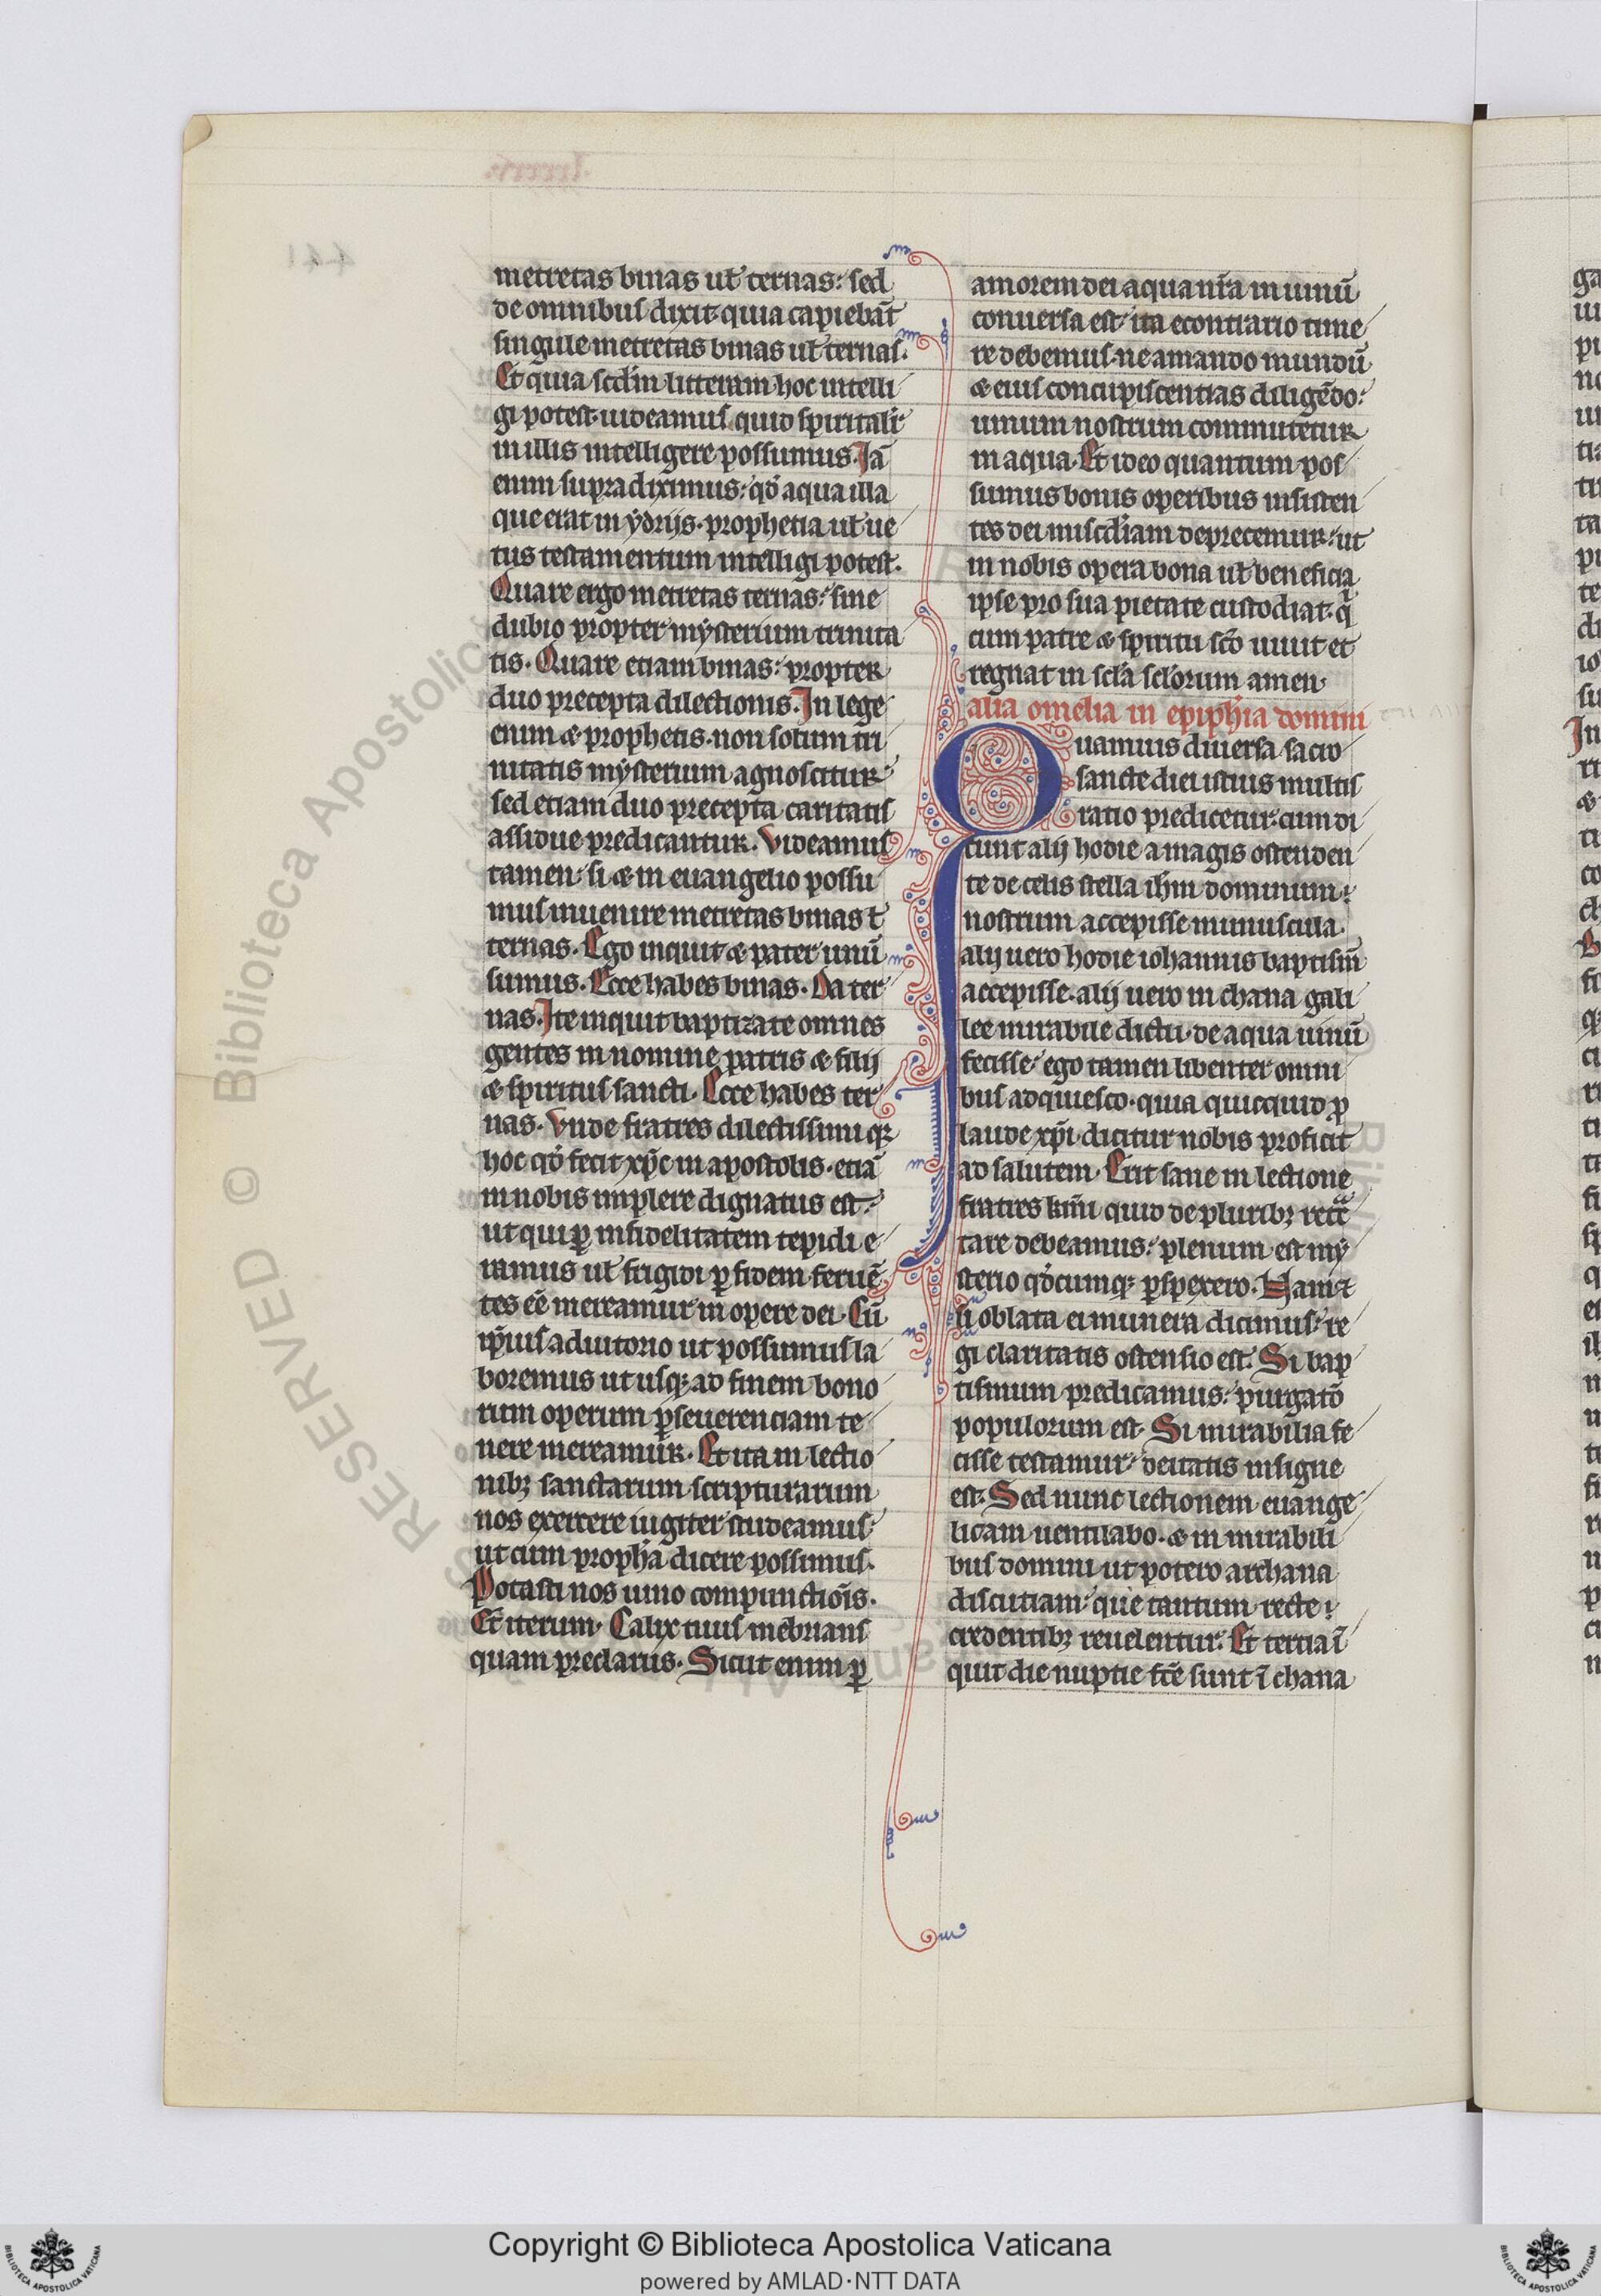 metretas binas ul̃ ternas: sed
de omnibus dixit· quia capiebãt
singule metretas binas ul̃ ternas.
Et quia scd̃m litteram hoc intelli
gi potest· uideamus quid spiritalit̃
in illis intelligere possumus. Jã
enim supra diximus: qd̃ aqua illa
que erat in ydrijs· prophetia ul̃ ue
tus testamentum intelligi potest.
Quare ergo metretas ternas: sine
dubio propter mysterium trinita
tis. Quare etiam binas: propter
duo precepta dilectionis. In lege
enim & prophetis· non solum tri
nitatis mysterium agnoscitur:
sed etiam duo precepta caritatis
assidue predicantur. Videamus
tamen· si & in euangelio possu
mus inuenire metretas binas ł
ternas. Ego inquit & pater unũ
sumus. Ecce habes binas. Da ter
nas. Ite inquit baptizate omnes
gentes in nomine patris & filij
& spiritus sancti. Ecce habes ter
nas. Vnde fratres dilectissimi q;
hoc qd̃ fecit xp̃c in apostolis· etiã
in nobis implere dignatus est:
ut qui ꝑ infidelitatem tepidi e
ramus ul̃ frigidi ꝑ fidem feruẽ
tes eẽ mereamur in opere dei. Cũ
ip̃ius adiutorio ut possumus la
boremus ut usq; ad finem bono
rum operum ꝑseuerentiam te
nere mereamur. Et ita in lectio
nib; sanctarum scripturarum
nos exercere iugiter studeamus:
ut cum proph̃a dicere possimus.
Potasti nos uino compunctiõis.
Et iterum· Calix tuus inẽbrians
quam preclarus. Sicut enim ꝑ
amorem dei aqua nr̃a in uinũ
conuersa est: ita econtrario time
re debemus· ne amando mundũ
& eius concupiscentias diligẽdo:
uinum nostrum commutetur
in aqua. Et ideo quantum pos
sumus bonis operibus insisten
tes dei misc̃diam deprecemur: ut
in nobis opera bona ul̃ beneficia
ipse pro sua pietate custodiat· q̃
cum patre & spiritu sc̃o uiuit et
regnat in scl̃a scl̃orum amen·
alia omelia in epiph̃ia domini
Quamuis diuersa sacro
sancte diei istius multis
ratio predicetur· cum di
cunt alij hodie a magis ostenden
te de celis stella ih̃m dominum
nostrum accepisse munuscula.
alij uero hodie iohannis baptism̃
accepisse· alij uero in chana gali
lee mirabile dictu· de aqua uinũ
fecisse: ego tamen libenter omni
bus adquiesco· quia quicquid ꝓ
laude xp̃i dicitur nobis proficit
ad salutem. Erit sane in lectione
fratres km̃i quid de plurib; recẽ
tare debeamus: plenum est my
sterio qd̃cumq; ꝑspexero. Nam &
si oblata ei munera dicimus: re
gi claritatis ostensio est. Si bap
tismum predicamus: purgatõ
populorum est. Si mirabilia fe
cisse testamur: deitatis insigne
est. Sed nunc lectionem euange
licam uentilabo. & in mirabili
bus domini ut potero archana
discutiam: que tantum recte
credentib; reuelentur. Et tertia ĩ
quit die nuptie fc̃e sunt ĩ chana
Copyright © Biblioteca Apostolica Vaticana
powered by AMLAD·NTT DATA